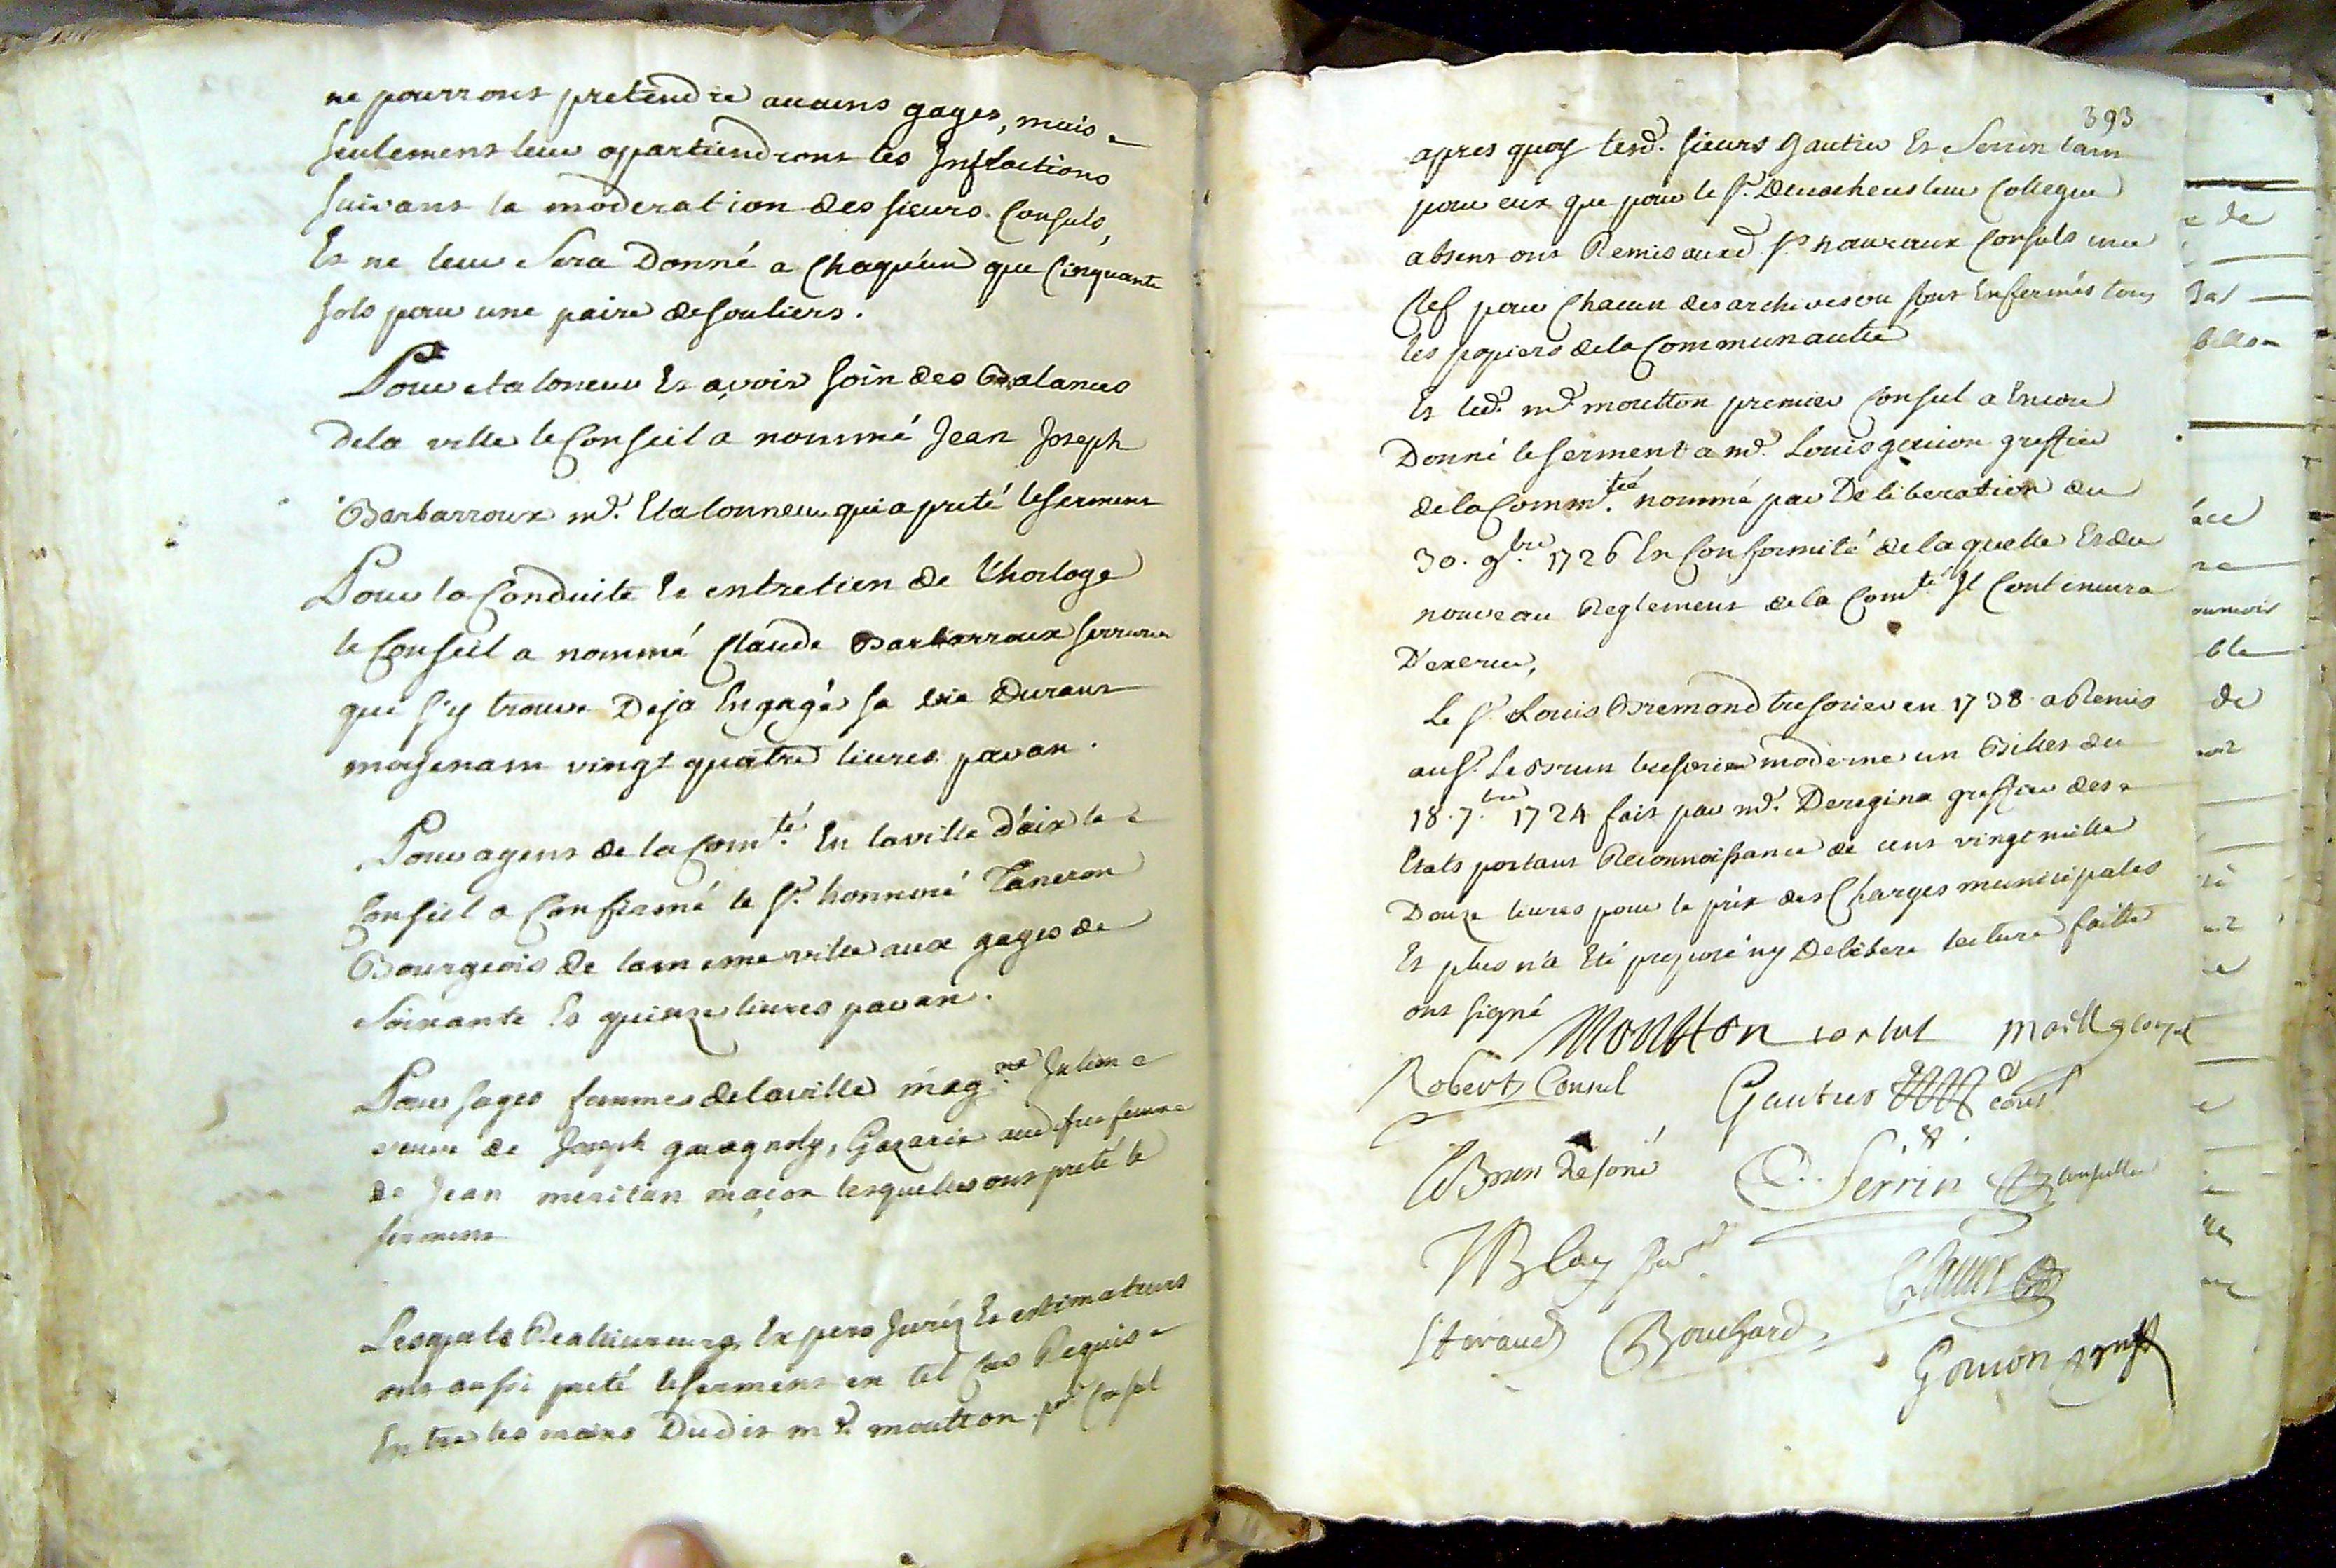 ne pourront pretendre aucuns gages, mais
seulement leur appartiendront les Inflactions
suivant la moderation des sieurs Consuls,
Et ne leur sera Donné a Chaqu'un que Cinquante
sols pour une paire de souliers.
Pour etaloneur Et avoir soin des Balances
de la ville le Conseil a nommé Jean Joseph
Barbarroux md. Etalonneur qui a preté le serment
Pour la Conduite Et entretien de l'horloge
le Conseil a nommé Claude Barbarroux serrurier
qui s'y trouve Deja Engagé sa vie Durant
moyenant vingt quatre livres par an.
Pour agent de la Comté. En la ville d'aix le
Conseil a Confirmé le Sr. honnoré Taneron
Bourgeois de la meme ville aux gages de
Soixante Et quinze livres par an.
Pour sages femmes de la ville magne. Julien
veuve de Joseph Gazarie femme
de Jean meritan maçon lesquelles ont preté le
serment
Lesquels Reallivreurs, Expers Jurés Et estimateurs
ont aussi preté le serment en tel Cas Requis
Entre les mains Dudit me moutton pr Consul
393
apres quoy lesd. sieurs gautier Et Serrin tant
pour eux que pour le Sr. leur Collegue
absent ont Remis auxd Srs nouveaux Consuls une
Clef pour Chacun des archives ou sont Enfermés tous
les papiers de la Communauté
Et led. me. moutton premier Consul a Encore
Donné le serment a me. Louis gouion greffier
de la Commté. nommé par Deliberation du
30. 9bre. 1726 En Conformité de laquelle Et du
nouveau Reglement de la Comté. Il Continuera
D'exercer,
Le Sr. Louis Bremond tresorier en 1738 a Remis
au Sr. Le Brun tresorier moderne un Billet du
18. 7bre. 1724 fait par me. Deregina greffier des
Etats portant Reconnoissance de cent vingt mille
Douze livres pour le prix des Charges municipales
Et plus n'a Eté proposé ny Delibere lecture faitte
ont signé Moutton consul
Robert Consul Gautier cons
LeBrun C. Serrin conseiller
Blay
Bouchard
Gouion greff